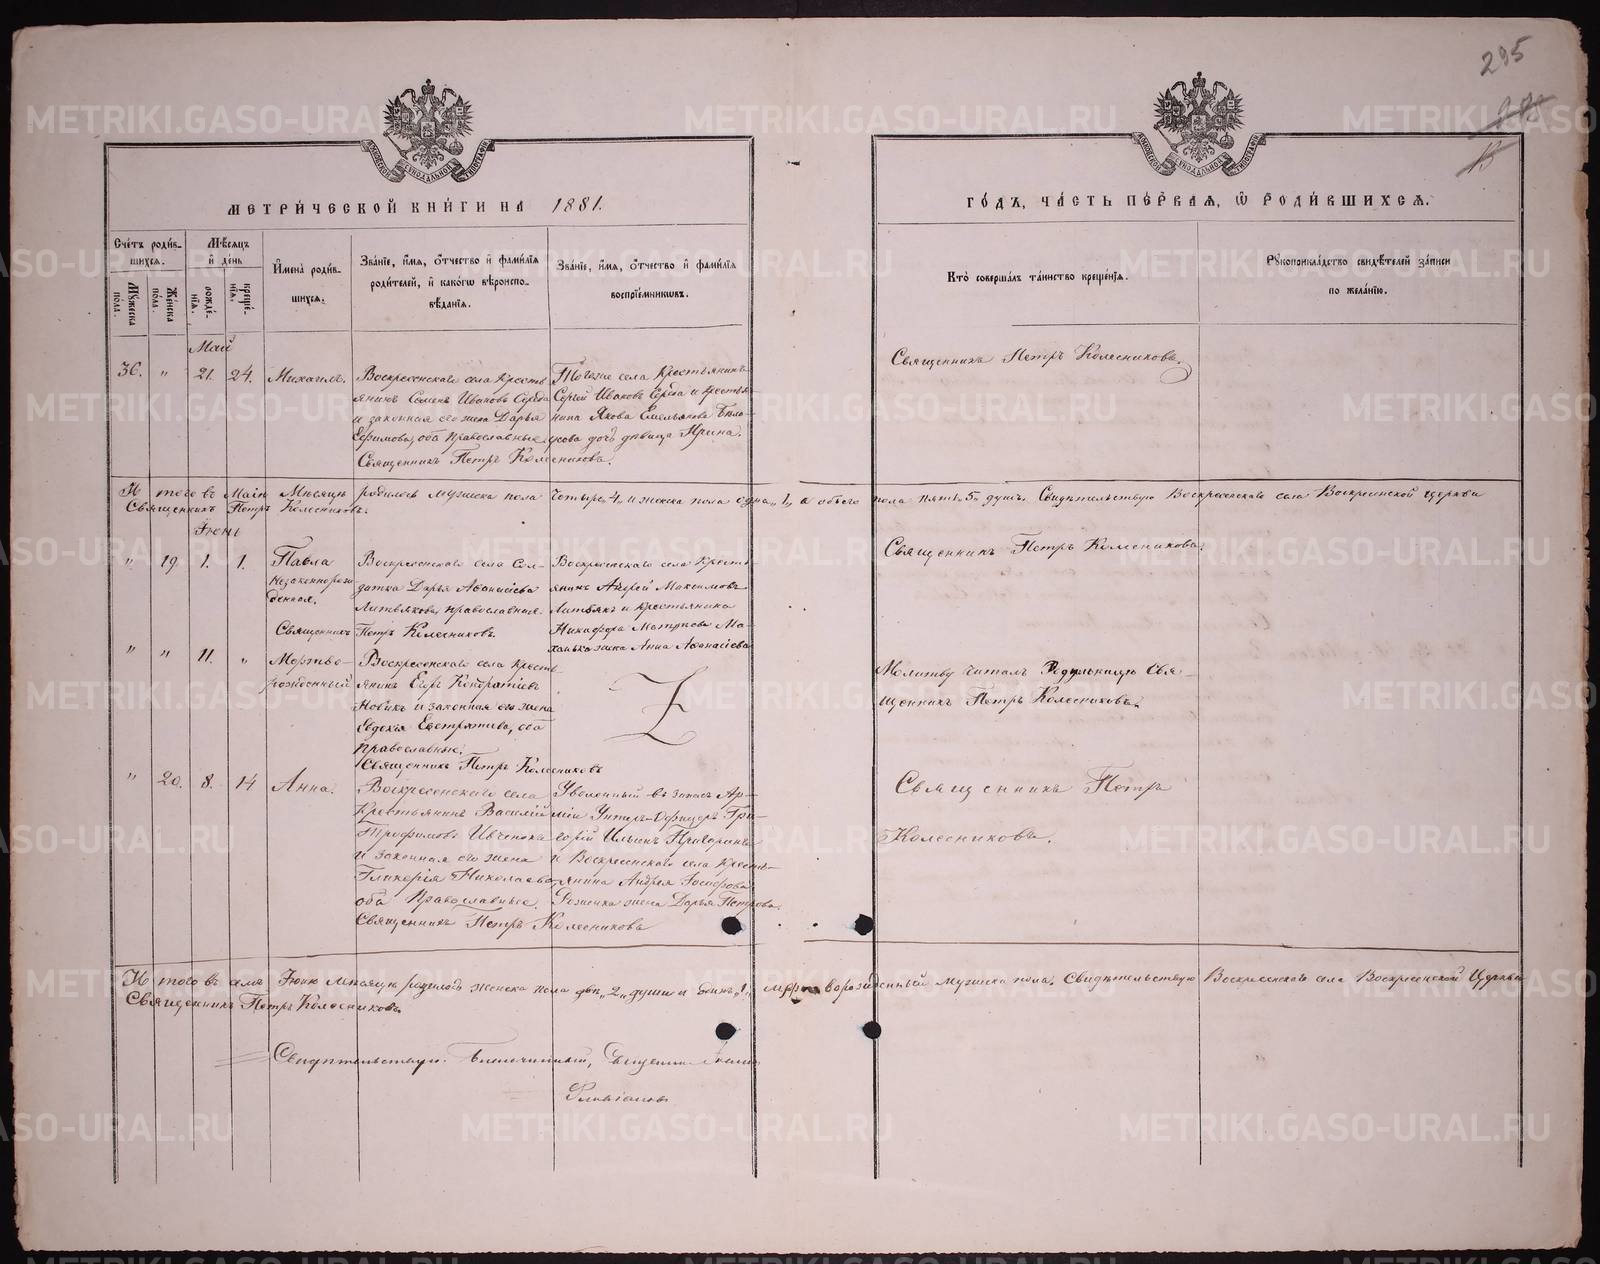 295
МЕТРИ́ЧЕСКОЙ КНИ́ГИ НА 1881.
ГО́ДЪ, ЧА́СТЬ ПЕ́РВАЯ, Ѡ РОДИ́ВШИХСЯ.
Сче́тъ роди́в-
шихся.
Му́жеска по́ла.
Же́нска по́ла.
Мѣ́сяцъ
и́ де́нь
рожде́-
нїя.
креще́-
нїя.
И́мена роди́в-
шихся.
Зва́нїе, и́мя, о́тчество и́ фами́лїя
роди́телей, и́ како́гѡ вѣроиспо-
вѣ́данїя.
Зва́нїе, и́мя, о́тчество и́ фами́лїя
воспрїе́мниковъ.
Кто̀ соверша́лъ та́инство креще́нїя.
Рꙋкоприкла́дство свидѣ́телей за́писи
по жела́нїю.
Май
36. " 21. 24. Михаилъ.
Воскресенскаго села Кресть-
янинъ Семенъ Ивановъ Середа
и законная его жена Дарья
Ефимова, оба православные.
Священникъ Петръ Колесниковъ.
Тогоже села Крестьянинъ
Сергѣй Ивановъ Середа и крестья-
нина Якова Емельянова Бѣло-
усова дочь дѣвица Ирина.
Священникъ Петръ Колесниковъ.
Итого въ Маѣ Мѣсяцѣ родилось мужеска пола четыре „4„ и женска пола одна „1„ а обоего пола пять „5„ душъ. Свидѣтельствую Воскресенскаго села Воскресенской церкви
Священникъ Петръ Колесниковъ.
Іюнь
" 19. 1. 1. Павла
незаконнорож-
денная.
Воскресенскаго села Сол-
датка Дарья Аѳонасіева
Литвякова, православная.
Священникъ Петръ Колесниковъ.
Воскресенскаго села Кресть-
янинъ Андрей Максимовъ
Литвякъ и крестьянина
Никифора Матѳеева Ма-
жена Анна Аѳонасіева
Священникъ Петръ Колесниковъ.
" " 11. " Мертво-
рожденный
Воскресенскаго села кресть-
янинъ Егоръ Кондратіевъ
Новикъ и законная его жена
Евдокія Евстратіева, оба
православные.
Священникъ Петръ Колесниковъ
Молитву читалъ Родильницѣ Свя-
щенникъ Петръ Колесниковъ.
" 20. 8. 14 Анна.
Воскресенскаго села
Крестьянинъ Василій
Трофимовъ Ивченко
и законная его жена
Гликерія Николаева,
оба Православные.
Священникъ Петръ Колесниковъ
Уволенный въ запасъ Ар-
міи Унтеръ-Офицеръ Гри-
горій Ильинъ
и Воскресенскаго села Кресть-
янина Андрея Іосифова
жена Дарья Петрова.
Священникъ Петръ
Колесниковъ.
Итого въ Іюнѣ мѣсяцѣ родилось женска пола двѣ „2„ души и одинъ „1„ мертворожденный мужеска пола. Свидѣтельствую Воскресенскаго села Воскресенской Церкви
Священникъ Петръ Колесниковъ
Свидѣтельствую: Благочинный, Священникъ
METRIKI.GASO-URAL.RU